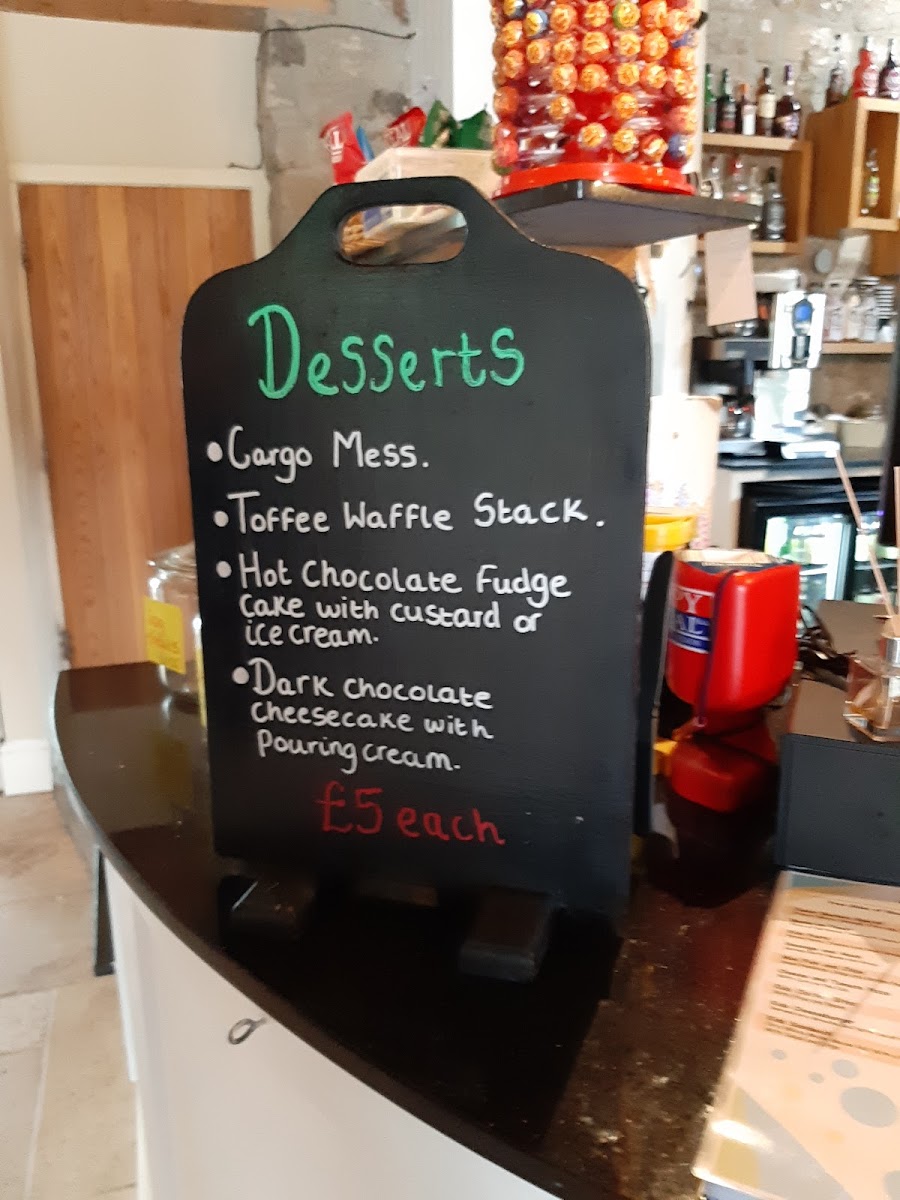 Desserts
• Cargo Mess.
• Toffee Waffle Stack.
• Hot Chocolate Fudge
cake with custard or
ice cream.
• Dark chocolate
cheesecake with
pouring cream.
£5 each